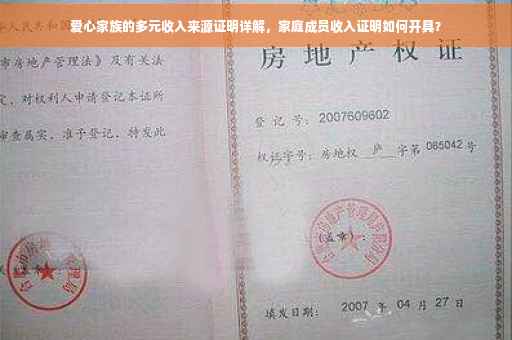 爱心家族的多元收入来源证明详解，家庭成员收入证明如何开具？
人民共和国
市房地产管理法》及有关法
定，对权利人申请登记本证所
审查属实，准予登记，特发此
房地产权证
登记号：2007609602
权证字号：房地权 庐 字第 065042 号
（盖章）：
填发日期：2007 年 04 月 27 日